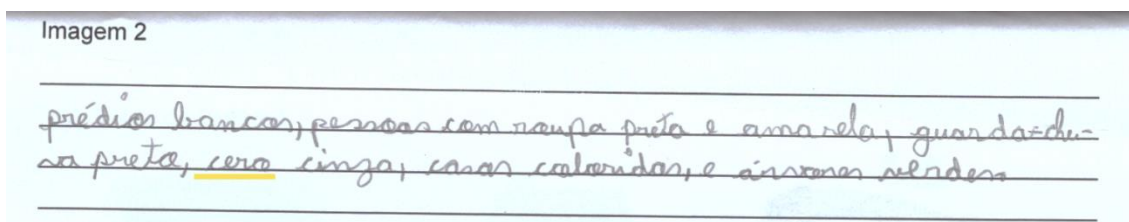 Imagem 2
prédios bancos, pessoas com roupa preta e amarela, guarda-chu-
va preta, cero cinza, casas coloridas, e árvores verdes